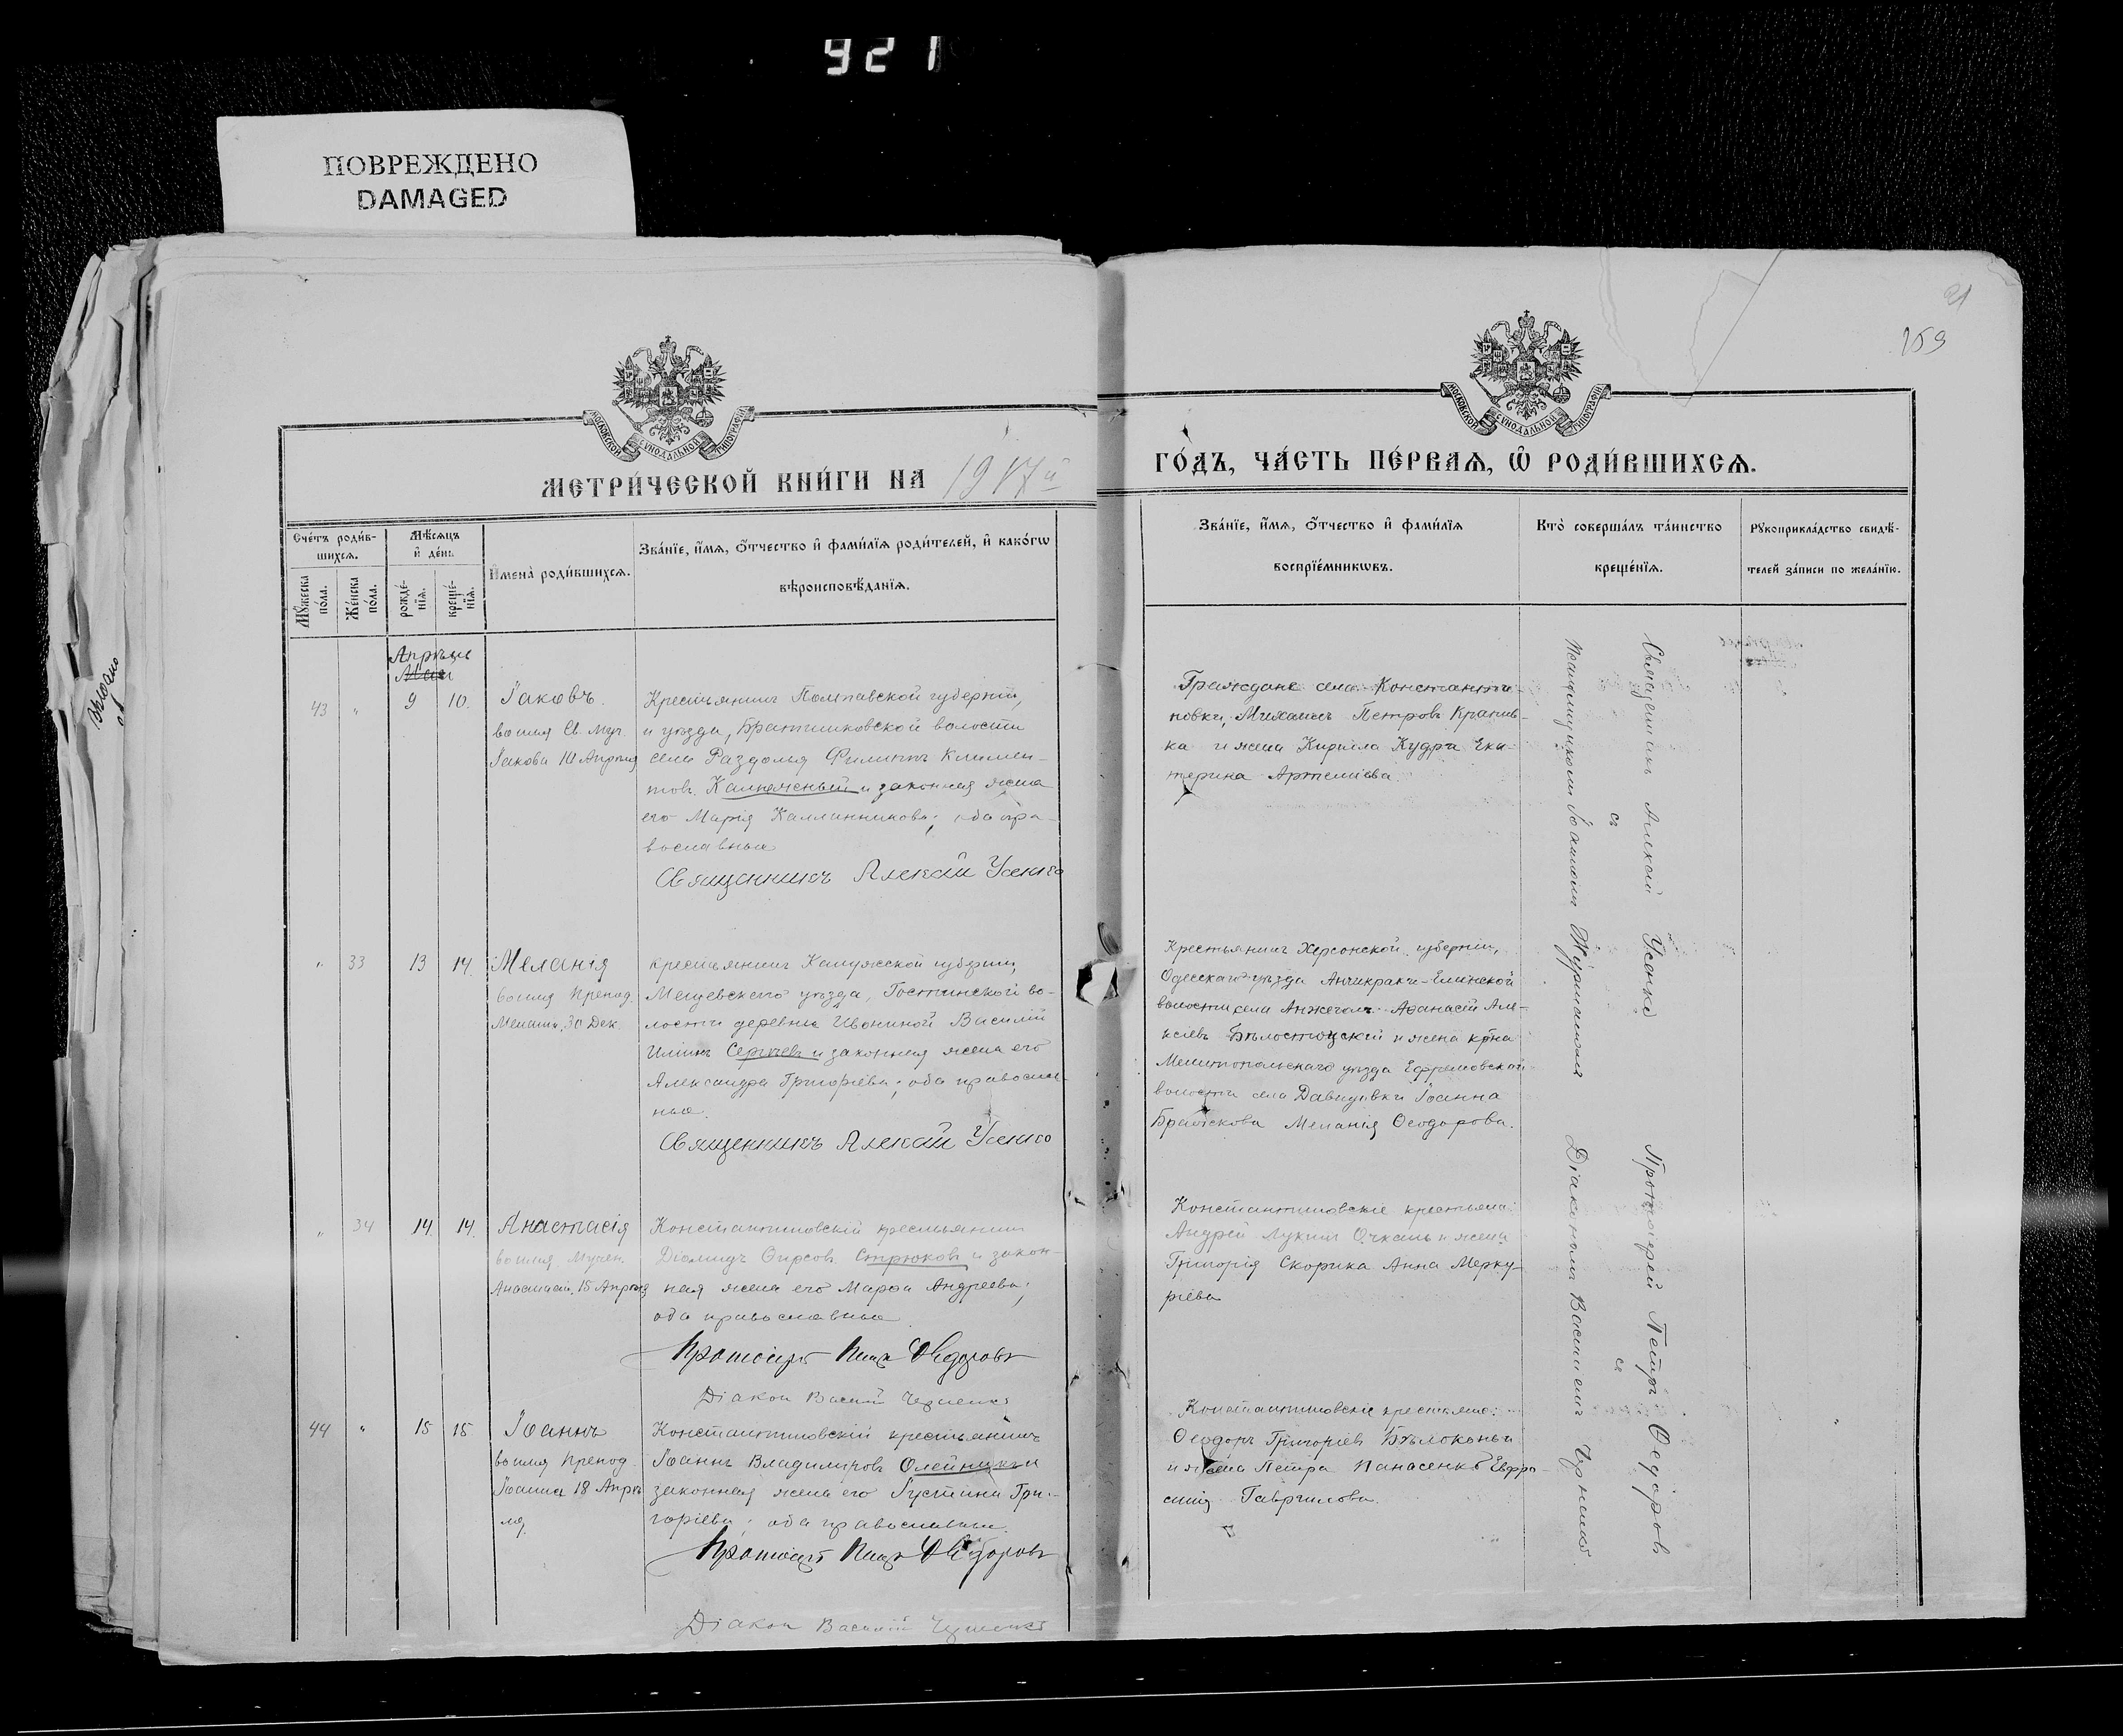 921
ПОВРЕЖДЕНО
DAMAGED
21
159
МОСКОВСКОЙ СУНОДАЛЬНОЙ ТИПОГРАФІИ
МОСКОВСКОЙ СУНОДАЛЬНОЙ ТИПОГРАФІИ
МЕТРИ́ЧЕСКОЙ КНИ́ГИ НА 1917й
ГО́ДЪ, ЧА́СТЬ ПЕ́РВАЯ, Ѿ РОДИ́ВШИХСЯ.
Сче́тъ роди́в-
шихся.
Мꙋ́жеска по́ла.
Же́нска по́ла.
Мѣ́сяцъ
и҆ де́нь
рожде́-
нїя.
креще́-
нїя.
И҆мена̀ роди́вшихся.
Зва́нїе, и҆́мя, ѻ҆́тчество и҆ фами́лїя роди́телей, и҆ како́гѡ
вѣроисповѣ́данїя.
Зва́нїе, и҆́мя, ѻ҆́тчество и҆ фами́лїя
воспрїе́мникѡвъ.
Кто̀ соверша́лъ та́инство
креще́нїя.
Рꙋкоприкла́дство свидѣ́-
телей за́писи по жела́нїю.
Апрѣль
Май
43 " 9 10.
Іаковъ.
во имя Св. Муч.
Іакова 10 Апрѣля
Крестьянинъ Полтавской губерніи,
и уѣзда, Братешковской волости
села Раздолья Филиппъ Климен-
товъ Калюжный и законная жена
его Марія Каллиникова; оба пра-
вославные
Священникъ Алексій Усенко
Граждане села Константи-
новки, Михаилъ Петровъ Крапив-
ка и жена Кирилла Кудри Ека-
терина Артеміева.
Священникъ Алексій Усенко
съ
Псаломщикомъ Іоанномъ
" 33 13 14.
Меланія
во имя Препод.
Меланіи, 30 Дек.
Крестьянинъ Калужской губерніи,
Мещевскаго уѣзда, Гостинской во-
лости деревни Ивониной Василій
Илiинъ Сергѣевъ и законная жена его
Александра Григоріева; оба православ-
ные.
Священникъ Алексій Усенко
Крестьянинъ Херсонской губерніи,
Одесскаго уѣзда
волости села Аѳанасій Але-
ксіевъ Бѣлостоцкій и жена кр-на
Мелитопольскаго уѣзда Ефремовской
волости села Давидовки Іоанна
Меланія Ѳеодорова.
" 34 14. 14.
Анастасія
во имя Мучен.
Анастасіи, 15 Апрѣля
Константиновскій крестьянинъ
Діомидъ Ѳирсовъ Стрюковъ и закон-
ная жена его Марѳа Андреева;
оба православные
Протоіерей Петръ Ѳедоровъ
Діаконъ Василій Черненко
Константиновскіе крестьяне:
Андрей Лукинъ Очкань и жена
Григорія Скорика Анна Мерку-
ріева
Протоіерей Петръ Ѳедоровъ
съ
Діакономъ Василіемъ Черненко.
44 " 15 15
Іоаннъ
во имя Препод.
Іоанна 18 Апрѣ-
ля.
Константиновскій крестьянинъ
Іоаннъ Владиміровъ Олейникъ и
законная жена его Іустина Гри-
горіева; оба православные.
Протоіерей Петръ Ѳедоровъ
Діаконъ Василій Черненко
Константиновскіе крестьяне:
Ѳеодоръ Григоріевъ Бѣлоконь и
и жена Петра Панасенко Евфро-
синія Гавріилова.